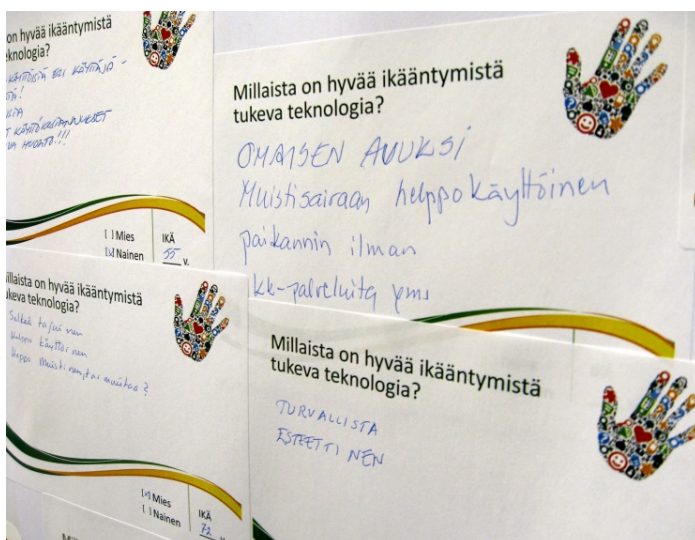 on hyvää ikääntymistä
eknologia?
ERI
KÄYTTÖKUSTANNUKSET
HUOLTO!!!
[ ] Mies
[x] Nainen
IKÄ
55 v.
Millaista on hyvää ikääntymistä
tukeva teknologia?
OMAISEN AVUKSI
Muistisairaan helppokäyttöinen
paikannin ilman
kk-palveluita yms
illaista on hyvää ikääntymistä
ukeva teknologia?
Selkeä tajuinen
Helppo käyttöinen
Helppo
[x] Mies
[ ] Nainen
IKÄ
72 v.
Millaista on hyvää ikääntymistä
tukeva teknologia?
TURVALLISTA
ESTEETTINEN